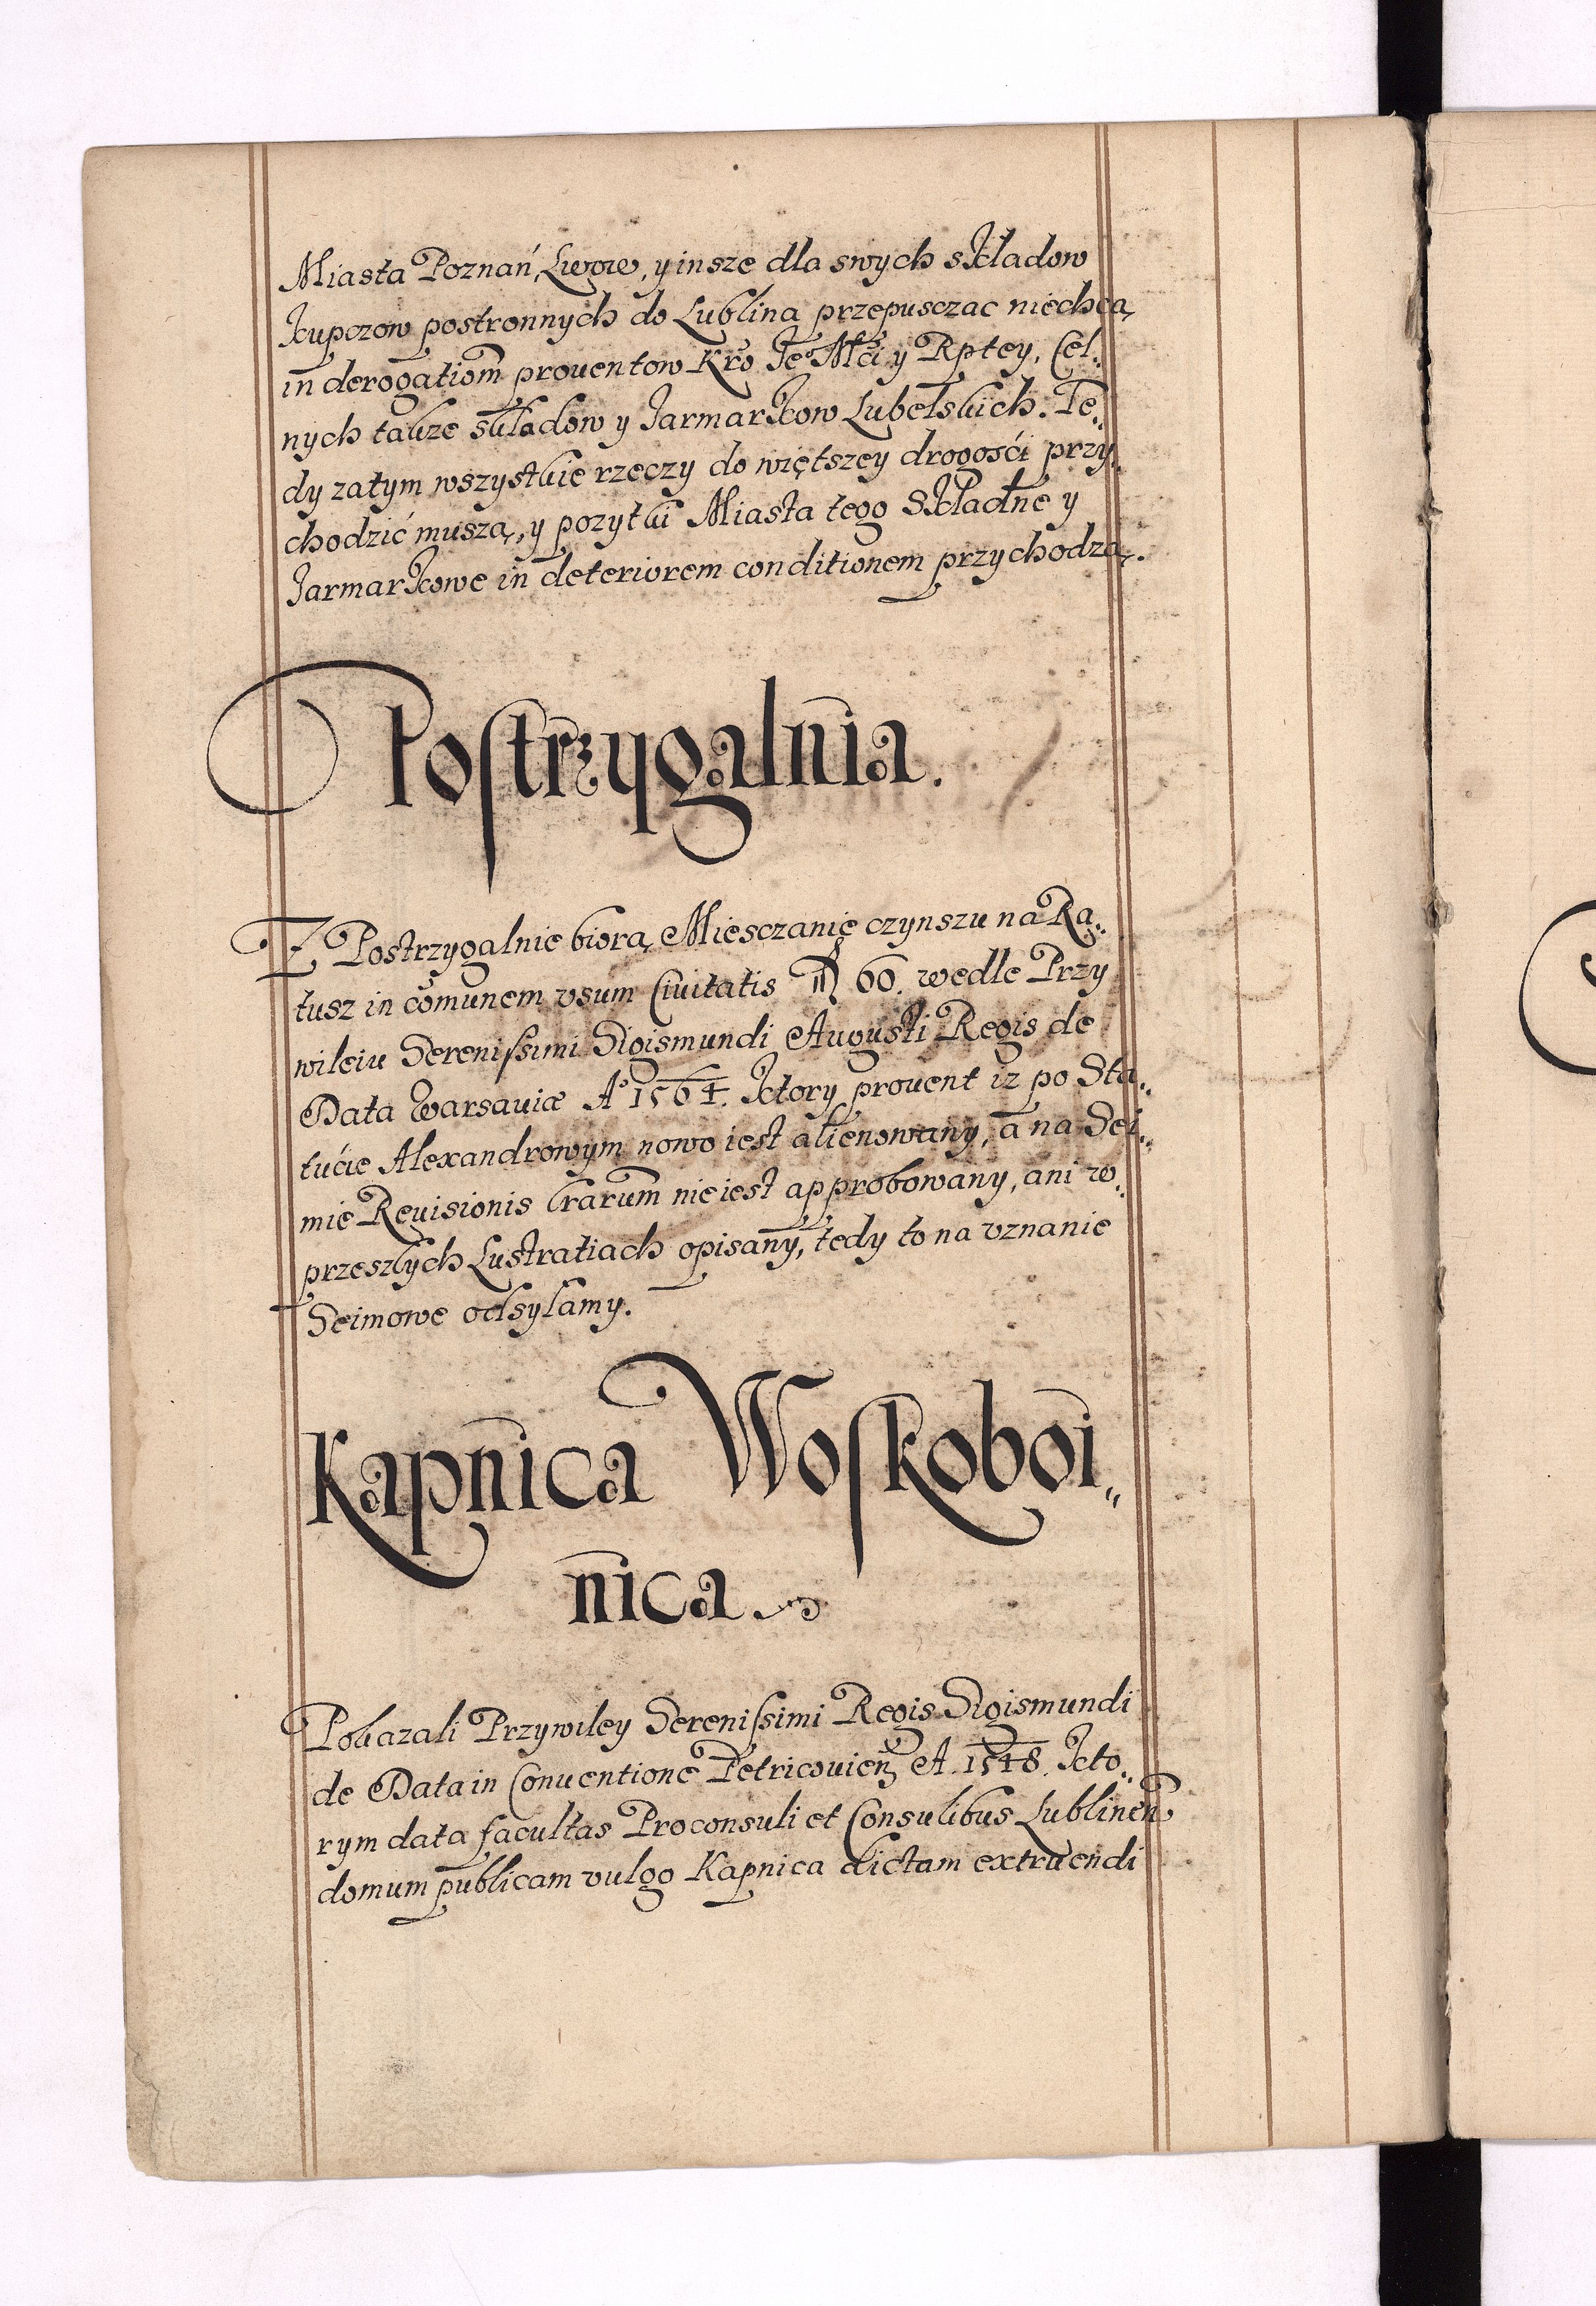 Miasta Poznań, Lwow, y insze dla swych składow
kupczow postronnych do Lublina przepusczac niechcą,
in derogatiom prouentow Kro Je° Mći y Rptey, Cel„
nych takze składow y Jarmarkow Lubelskich. Te„
dy zatym wszystkie rzeczy do więtszey drogośći przy„
chodzić muszą, y pozytki Miasta tego Składne y
Jarmarkowe in deteriorem conditionem przychodzą.
Postrzygalnia.
Z Postrzygalnie biorą Miesczanie czynszu na Ra„
tusz in comunem vsum Ciuitatis 60. wedle Przy
wileiu Serenissimi Sigismundi Augusti Regis de
Data Warsauiæ A° 1564. ktory prouent iz po Sta„
tućie Alexandrowym nowo iest alienowany, a na Sei„
mie Reuisionis Iurarum nie iest approbowany, ani w„
przeszłych Lustratiach opisany, tedy to na vznanie
Seimowe odsyłamy.
Kapnica Woskoboi„
nica.
Pokazali Przywiley Serenissimi Regis Sigismundi
de Data in Conuentione Petricouien A. 1548. kto„
rym data facultas Proconsuli et Consulibus Lublinen
domum publicam vulgo Kapnica dictam extruendi